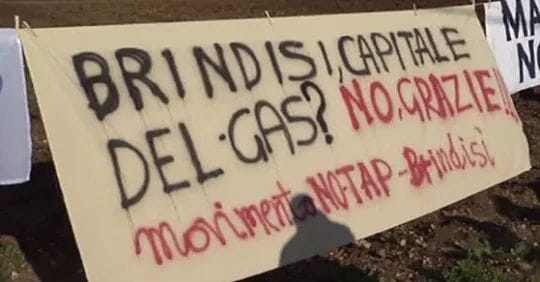 BRINDISI, CAPITALE
DEL GAS? NO, GRAZIE!!
movimento NO-TAP-Brindisi
MA
NO